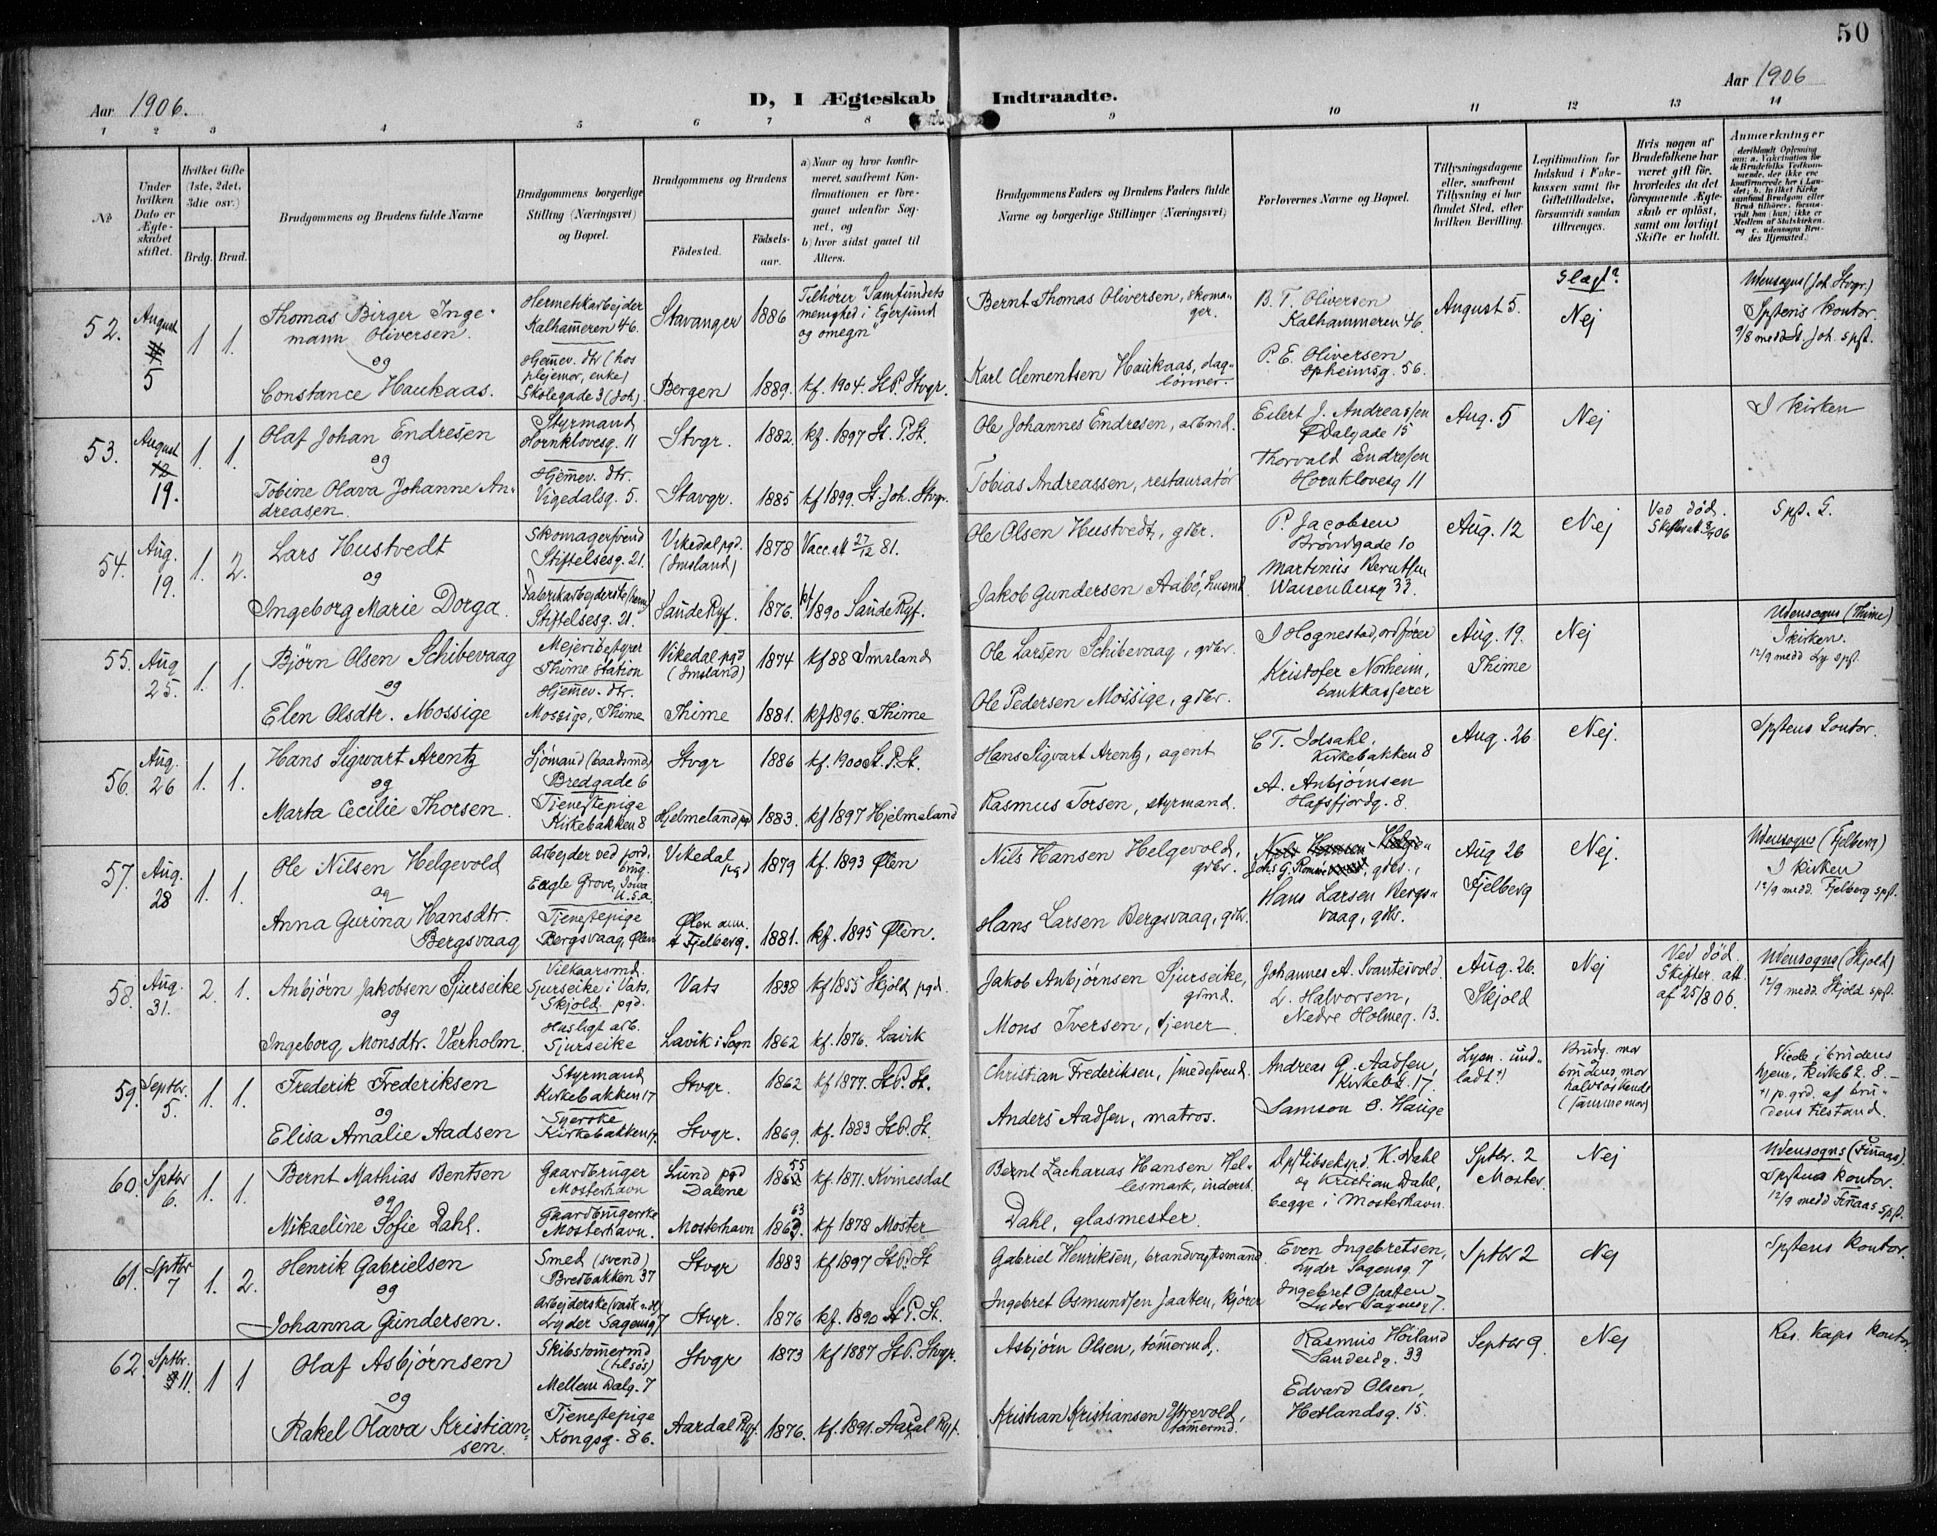 50
Aar 1906.
D, I Ægteskab Indtraadte.
Aar 1906
1 2 3 4 5 6 7 8 9 10 11 12 13 14
№
Under hvilken Dato er Ægteskabet stiftet.
Hvilket Gifte (1ste, 2det, 3die osv.)
Brdg. Brud.
Brudgommens og Brudens fulde Navne
Brudgommens borgerlige Stilling (Næringsvei) og Bopæl.
Brudgommens og Brudens
Födested.
Födselsaar.
a) Naar og hvor konfirmeret, saafremt Konfirmationen er foregaaet udenfor Sognet, og
b) hvor sidst gaaet til Alters.
Brudgommens Faders og Brudens Faders fulde Navne og borgerlige Stillinger (Næringsvei)
Forlovernes Navne og Bopæl.
Tillysningsdagene eller, saafremt Tillysning ei har fundet Sted, efter hvilken Bevilling.
Legitimation for Indskud i Enkekassen samt for Giftetilladelse, forsaavidt saadan tiltrænges.
Hvis nogen af Brudefolkene har været gift för, hvorledes da det foregaaende Ægteskab er oplöst, samt om lovligt Skifte er holdt.
Anmærkninger
52. August 5 1 1.
Thomas Birger Ingemann Oliversen.
og
Constance Haukaas.
Hermetikarbejder Kalhammeren 46.
Hjemmev. dtr (hos plejemor, enke) Skolegade 3 (Joh).
Stavanger 1886 Tilhører "Samfundets menighed i Egersund og omegn"
Bergen 1889. kf. 1904. St.P. Stvgr.
Bernt Thomas Oliversen, skomager.
Karl Clementsen Haukaas, daglønner.
B. T. Oliversen Kalhammeren 46.
P. E. Oliversen Opheimsg. 56.
August 5.
Slægt? Nej
Udensogns (Joh. Stvgr.) Spstens kontor. 9/8 medd St. Joh. spst.
53. August 12 19. 1. 1.
Olaf Johan Endresen
og
Tobine Olava Johanne Andreasen.
Styrmand Hornklovesg. 11
Hjemmev. dtr. Vigedalsg. 5.
Stvgr. 1882. kf. 1897 St. P. St.
Stavgr. 1885 kf 1899. St. Joh. Stvgr.
Ole Johannes Endresen, arbmd.
Tobias Andreassen, restauratør
Eilert J. Andreassen Ø Dalgade 15
Thorvald Endresen Hornklovesg 11
Aug. 5
Nej
I kirken
54. Aug. 19. 1. 2.
Lars Hustvedt
og
Ingeborg Marie Dorga.
Skomagersvend Stiftelsesg. 21.
Fabrikarbejderske (herm) Stiftelsesg. 21.
Vikedal pgd. (Imsland) 1878 Vacc. att 27/12 81.
Saude Ryf. 1876. kf 1890 Saude Ryf.
Ole Olsen Hustvedt, gbr.
Jakob Gundersen Aabø, husmd
P. Jacobsen Brøndgade 10
Martinius Berntsen Waisenhusg 33.
Aug. 12
Nej
Ved død. Skifteatt. 06
Spst. G.
55. Aug 25. 1. 1.
Bjørn Olsen Schibevaag
og
Elen Olsdtr. Mossige
Mejeribestyrer Thime station
Hjemmev. dtr. Mossige, Thime
Vikedal pgd (Imsland) 1874 kf 88 Imsland
Thime 1881. kf 1896. Thime
Ole Larsen Schibevaag, gdbr.
Ole Pedersen Mossige, gdbr.
I Hognestad, ordfører
Kristofer Norheim, bankkasserer
Aug. 19. Thime
Nej
Udensogns (Thime) I kirken. 12/9 medd Ly spst.
56. Aug. 26 1. 1.
Hans Sigwart Arentz
og
Marta Cecilie Thorsen.
Sjømand (baadsmd) Bredgade 6
Tjenestepige Kirkebakken 8
Stvgr 1886 kf. 1900 St. P. St.
Hjelmeland pgd 1883. kf 1897 Hjelmeland
Hans Sigvart Arentz, agent
Rasmus Torsen, styrmand.
C T. Idsahl, Kirkebakken 8
A. Anbjørnsen Hafsfjordg. 8.
Aug. 26
Nej.
Spstens kontor.
57. Aug. 28 1. 1.
Ole Nilsen Helgevold
og
Anna Gurina Hansdtr. Bergsvaag
Arbejder ved jordbrug. Eagle Grove, Iowa U.S.a.
Tjenestepige Bergsvaag, Ølen
Vikedal pgd 1879 kf. 1893 Ølen
Ølen ann. t Fjelberg. 1881. kf. 1895 Ølen.
Nils Hansen Helgevold, gdbr.
Hans Larsen Bergsvaag, gdbr.
Hans Larsen Bergsvaag, gdbr.
Aug 26 Fjelberg
Nej.
Udensogns (Fjelberg) I kirken 12/9 medd. Fjelberg spst.
58. Aug. 31. 2. 1.
Anbjørn Jakobsen Sjurseike
og
Ingeborg Monsdtr. Værholm.
Vilkaarsmd. Sjurseike i Vats, Skjold pgd.
Husligt arb. Sjurseike
Vats 1838 kf 1855 Skjold pgd.
Lavik i Sogn 1862 kf. 1876. Lavik
Jakob Anbjørnsen Sjurseike, grmd.
Mons Iversen, tjener.
Johannes A. Svantesvold.
L. Halvorsen, Nedre Holmeg. 13.
Aug. 26. Skjold
Nej
Ved død. Skifter. att af 25/8 06.
Udensogns (Skjold) 12/9 medd. Skjold spst.
59. Septbr. 5. 1. 1.
Frederik Frederiksen
og
Elisa Amalie Aadsen
Styrmand Kirkebakken 17
Syerske Kirkebakken 17.
Stvgr. 1862 kf 1877. St.P. St.
Stvgr. 1869. kf. 1883 St.P. St.
Christian Frederiksen, smedesvend.
Anders Aadsen, matros.
Andreas G. Aadsen, Kirkeb. 17.
Samson O. Hauge
Lysn. undladt +)
Brudg. mor brudens mor halvsøskende (samme mor)
Viede i brudens hjem, Kirkeb 2. 8. — +) p. grd. af brudens tilstand.
60. Sptbr 6. 1. 1.
Bernt Mathias Bentsen
og
Mikaeline Sofie Dahl.
Gaardbruger Mosterhavn
Gaardbrugerske Mosterhavn.
Lund pgd Dalene 1855 kf. 1871. Kvinesdal
Mosterhavn 1863. kf 1878 Moster
Bernt Zacharias Hansen Hellesmark, inderst.
Dahl, glasmester.
Dpskibseksp. K. Dahl og Kristian Dahl, begge i Mosterhavn.
Sptbr. 2 Moster.
Nej
Udensogns (Finaas). Spstens kontor. 12/9 medd Finaas spst.
61. Sptbr 7 1. 2.
Henrik Gabrielsen
og
Johanna Gundersen.
Smed (svend) Bredbakken 37
Arbejderske (vask o. dl) Lyder Sagensg 7
Stvgr 1883 kf 1897 St.P. St
Stvgr. 1876 kf. 1890 St P. St.
Gabriel Henriksen, brandvagtsmand.
Ingebret Osmundsen Jaatten, kjører
Even Ingebretsen, Lyder Sagensg. 7
Ingebret O Jaatten Lyder Sagensg 7.
Sptbr 2
Nej
Spstens kontor.
62. Sptbr. 11. 1 1
Olaf Asbjørnsen
og
Rakel Olava Kristiansen.
Skibstømmermd (tilsøs) Mellem Dalg. 7
Tjenestepige Kongsg. 86.
Stvgr 1873 kf 1887 St.P. Stvgr.
Aardal Ryf. 1876. kf. 1891. Aardal Ryf.
Asbjørn Olsen, tømmermd.
Kristian Kristiansen Ytrevold, tømmermd.
Rasmus Høiland Sandeidg. 33
Edvard Olsen, Hetlandsg. 15.
Septbr 9.
Nej
Res. Kaps kontor.